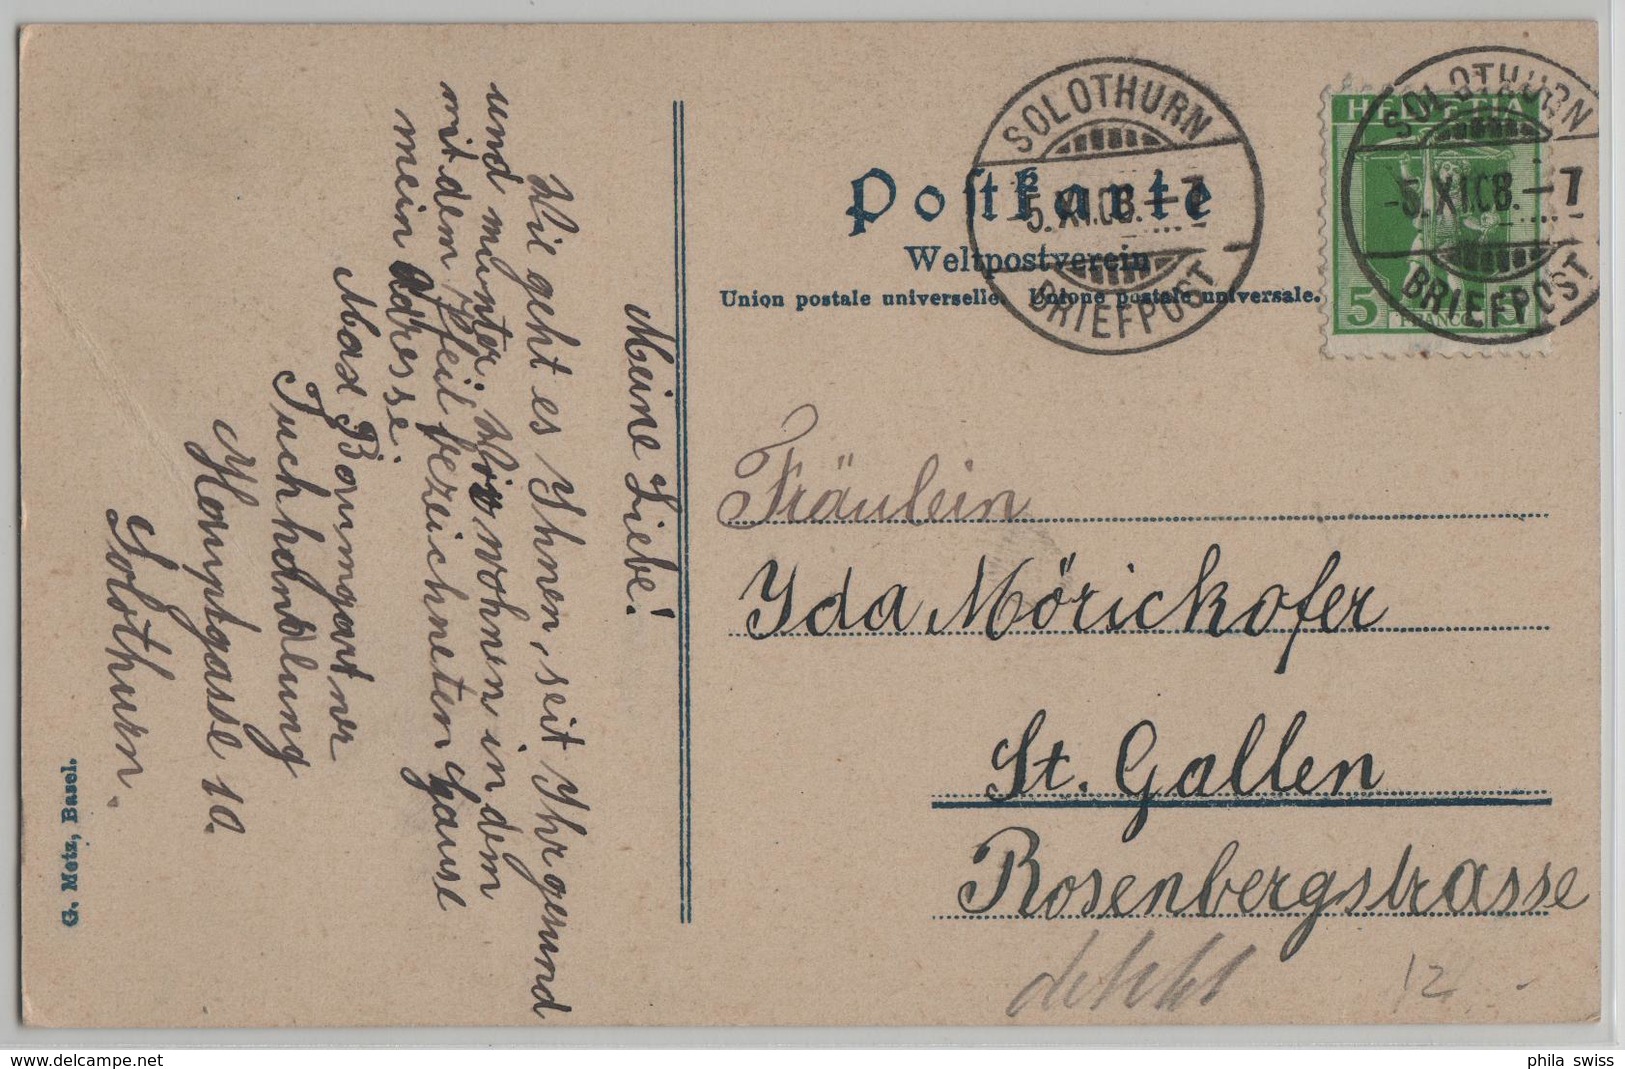 Postkarte
Weltpostverein
Union postale universelle. Unione postale universale.
SOLOTHURN
5.XI.08.–7
BRIEFPOST
SOLOTHURN
-5.XI.08.–7
BRIEFPOST
HELVETIA
5 FRANCO 5
Meine Liebe!
Wie geht es Ihnen, seit Ihr gesund
und munter. Wir wohnen in dem
mit dem Pfeil bezeichneten Hause
mein Adresse.
Baumgartner
Tuchhandlung
Hauptgasse 10.
Solothurn.
Fräulein
Ida Mörickofer
St. Gallen
Rosenbergstrasse
12
G. Metz, Basel.
www.delcampe.net
phila_swiss